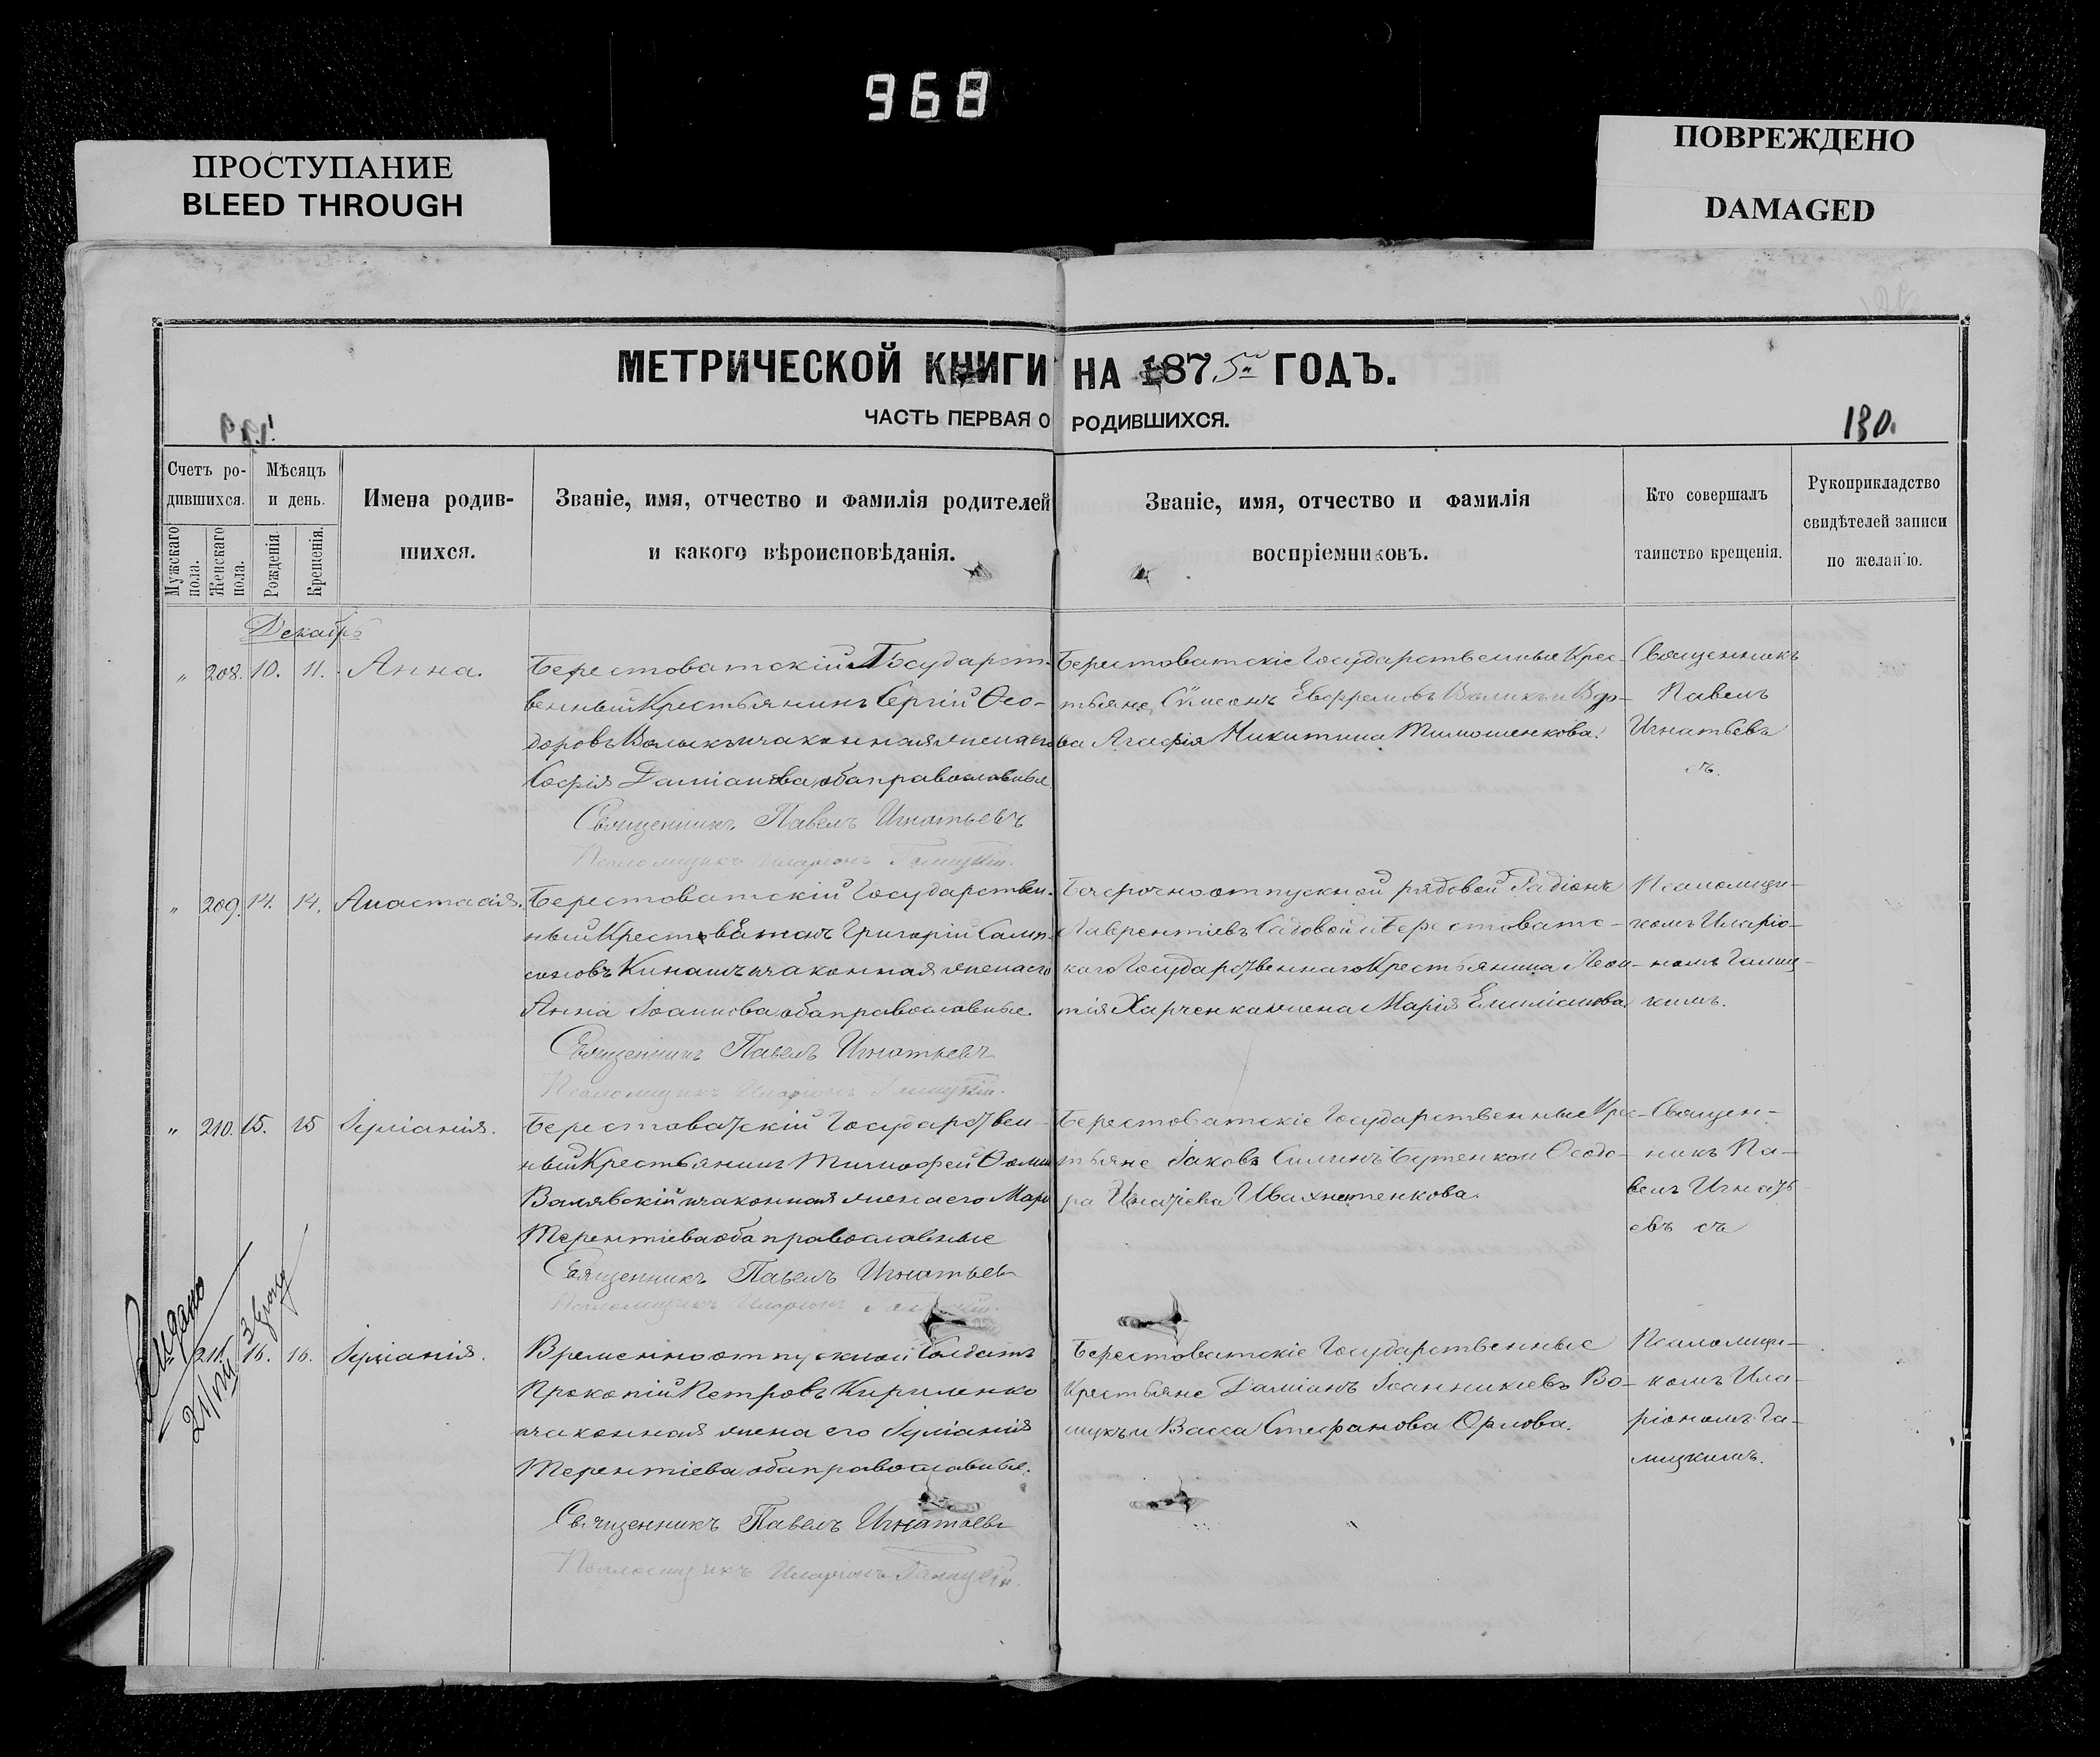 968
ПРОСТУПАНИЕ
BLEED THROUGH
ПОВРЕЖДЕНО
DAMAGED
МЕТРИЧЕСКОЙ КНИГИ НА 1875 ГОДЪ.
ЧАСТЬ ПЕРВАЯ О РОДИВШИХСЯ.
130.
Счетъ ро-
дившихся.
Мужскаго пола.
Женскаго пола.
Мѣсяцъ
и день.
Рожденія.
Крещенія.
Имена родив-
шихся.
Званіе, имя, отчество и фамилія родителей
и какого вѣроисповѣданія.
Званіе, имя, отчество и фамилія
воспріемниковъ.
Кто совершалъ
таинство крещенія.
Рукоприкладство
свидѣтелей записи
по желанію.
Декабрь
„ 208. 10. 11. Анна.
Берестоватскій Государст-
венный Крестьянинъ Сергій Ѳео-
доровъ и законная жена его
Софія Даміанова оба православные
Священникъ Павелъ Игнатьевъ
Псаломщикъ Иларіонъ Галицкій.
Берестоватскіе Государственные Крес-
тьяне Евфремовъ и Вдо-
ва Агафія Никитина Тимошенкова.
Священникъ
Павелъ
Игнатьевъ
съ
„ 209. 14. 14. Анастасія.
Берестоватскій Государствен-
ный Григорій Самп-
соновъ Кинашъ и законная жена его
Анна Іоаннова оба православные.
Священникъ Павелъ Игнатьевъ
Псаломщикъ Иларіонъ Галицкій.
Безсрочноотпускной рядовой Радіонъ
Лаврентіевъ Садовой и Берестоватс-
каго Государственнаго Крестьянина Леон-
тія Харченка жена Марія Емиліанова
Псаломщи-
комъ Иларіо-
номъ Галиц-
кимъ.
„ 210. 15. 15 Іуліанія.
Берестоватскій Государствен-
ный Крестьянинъ Тимофей Ѳомин
Валявскій и законная жена его Марѳ
Терентіева оба православные
Священникъ Павелъ Игнатьевъ
Псаломщикъ Иларіонъ
Берестоватскіе Государственные Крес-
тьяне Іаковъ и Ѳеодо-
ра Игнатіева Ивахненкова.
Священ-
никъ Па-
велъ Игнать
евъ съ
Выдано
21/VIII
211. 16. 16. Іуліанія.
Временноотпускной Солдатъ
Прокопій Петровъ Кириленко
и законная жена его Іуліанія
Терентіева оба православные.
Священникъ Павелъ Игнатьевъ
Псаломщикъ Иларіонъ Галицкій.
Берестоватскіе Государственные
Крестьяне Даміанъ Іоанникіевъ Во-
ликъ и Васса Стефанова Орлова.
Псаломщи-
комъ Ила-
ріономъ Га-
лицкимъ.